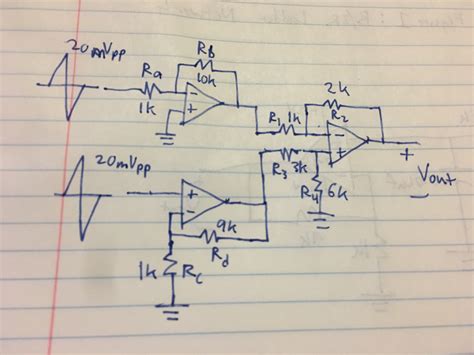 20mVpp
Ra
1k
Rb
10k
R1 1k
2k
R2
+
Vout
-
20mVpp
R3 3k
R4 6k
9k
Rd
1k Rc